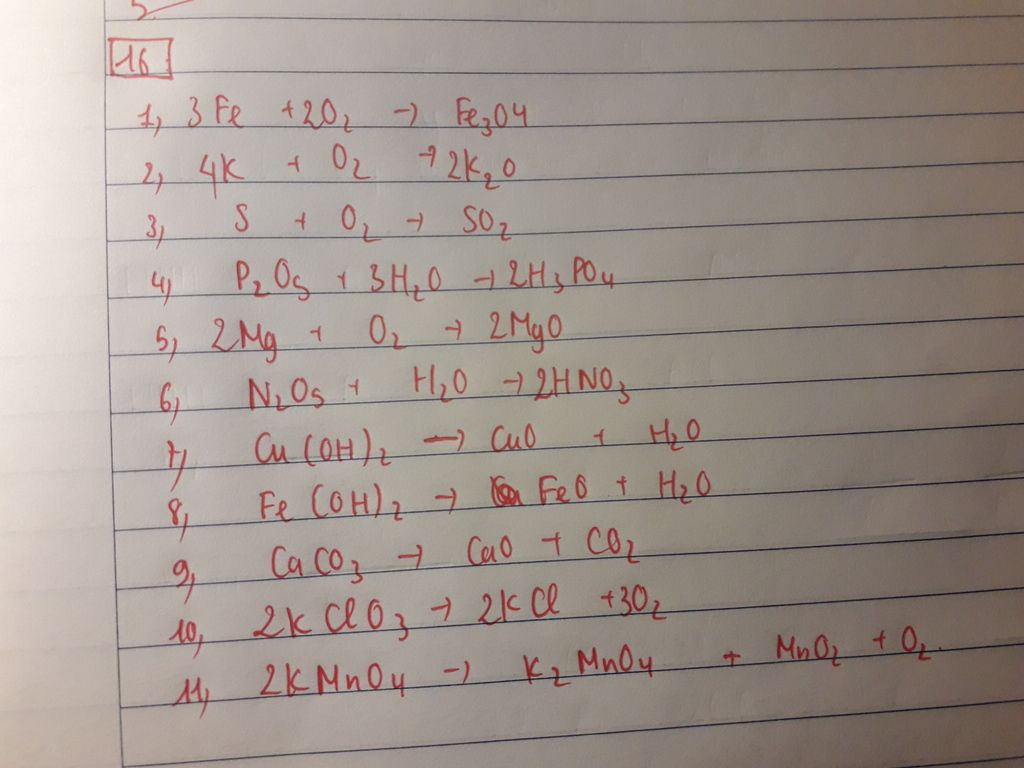 16
1, 3Fe + 2O₂ → Fe₃O4
2, 4K + O₂ → 2K₂O
3, S + O₂ → SO₂
4, P₂O₅ + 3H₂O → 2H₃PO₄
5, 2Mg + O₂ → 2MgO
6, N₂O₅ + H₂O → 2HNO₃
7, Cu(OH)₂ → CuO + H₂O
8, Fe(OH)₂ → FeO + H₂O
9, CaCO₃ → CaO + CO₂
10, 2KClO₃ → 2KCl + 3O₂
11, 2KMnO₄ → K₂MnO₄ + MnO₂ + O₂.